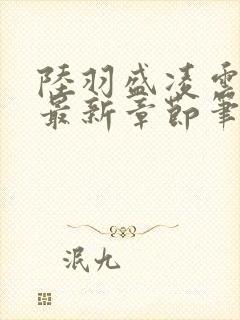 陸羽盛凌雲
最新章節筆
泯九